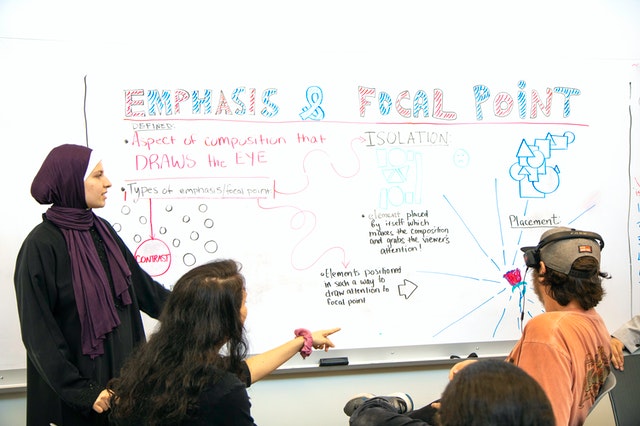 EMPHASIS & FOCAL POINT
DEFINED:
• Aspect of composition that
DRAWS the EYE
• Types of emphasis/focal point
CONTRAST
ISOLATION
• element placed
by itself which
makes the composition
and grabs the viewer's
attention!
Placement
• Elements positioned
in such a way to
draw attention to
focal point